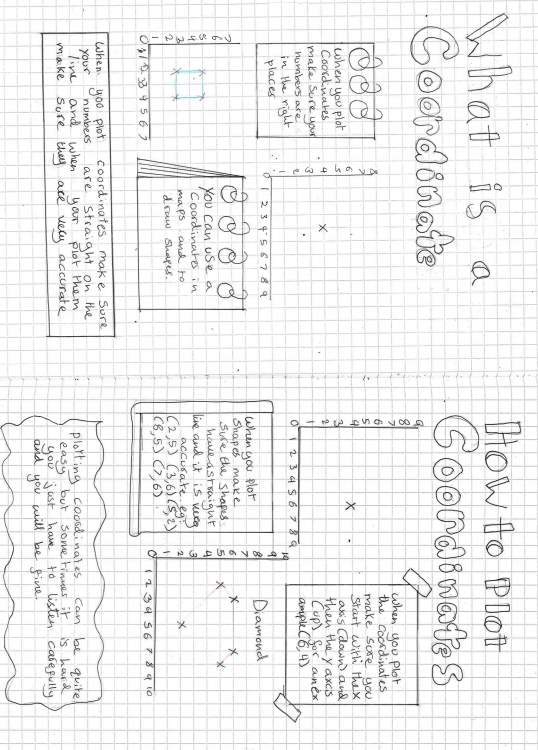 What is a
Coordinate
When you plot
Coordinates
make sure your
numbers are
in the right
places
8
7
6
5
4
3
2
1
0
1 2 3 4 5 6 7 8 9
You can use a
Coordinates in
maps and to
draw shapes.
7
6
5
4
3
2
1
0
1 2 3 4 5 6 7
When you plot coordinates make sure
your numbers are straight on the
line and when your plot them
make sure they are very accurate
How to Plot
Coordinates
9
8
7
6
5
4
3
2
1
0
1 2 3 4 5 6 7 8 9
when you plot
the coordinates
make sure you
start with the x
axis (down) and
then the y axis
(up) for an ex
ample (6,4)
when you plot
shapes make
sure the shapes
have a straight
line and it is very
accurate eg:
(2,5) (3,6) (5,2)
(8,5) (7,6).
Diamond
10
9
8
7
6
5
4
3
2
1
0
1 2 3 4 5 6 7 8 9 10
plotting coordinates can be quite
easy but sometimes it is hard
you just have to listen carefully
and you will be fine